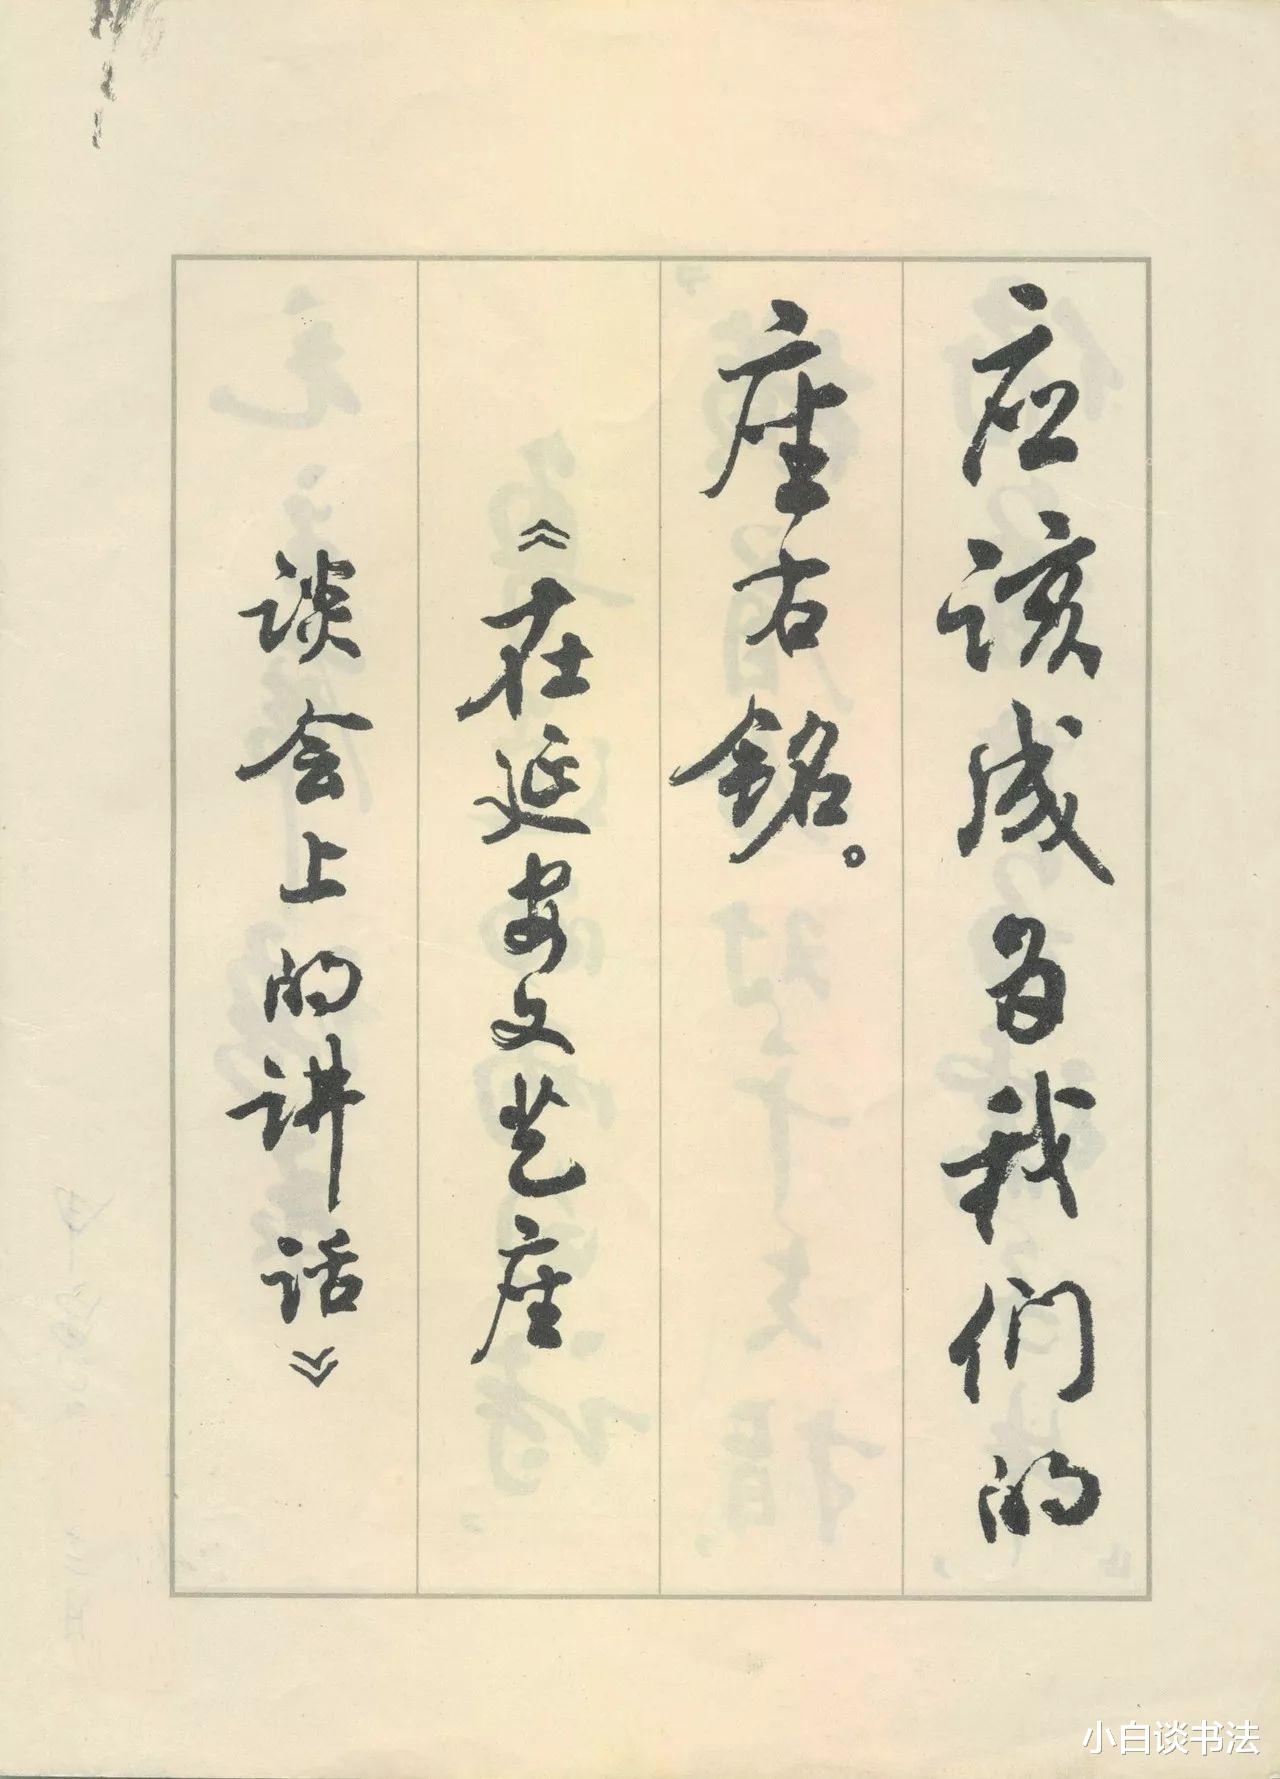 应该成为我们的
座右铭。
《在延安文艺座
谈会上的讲话》
小白谈书法